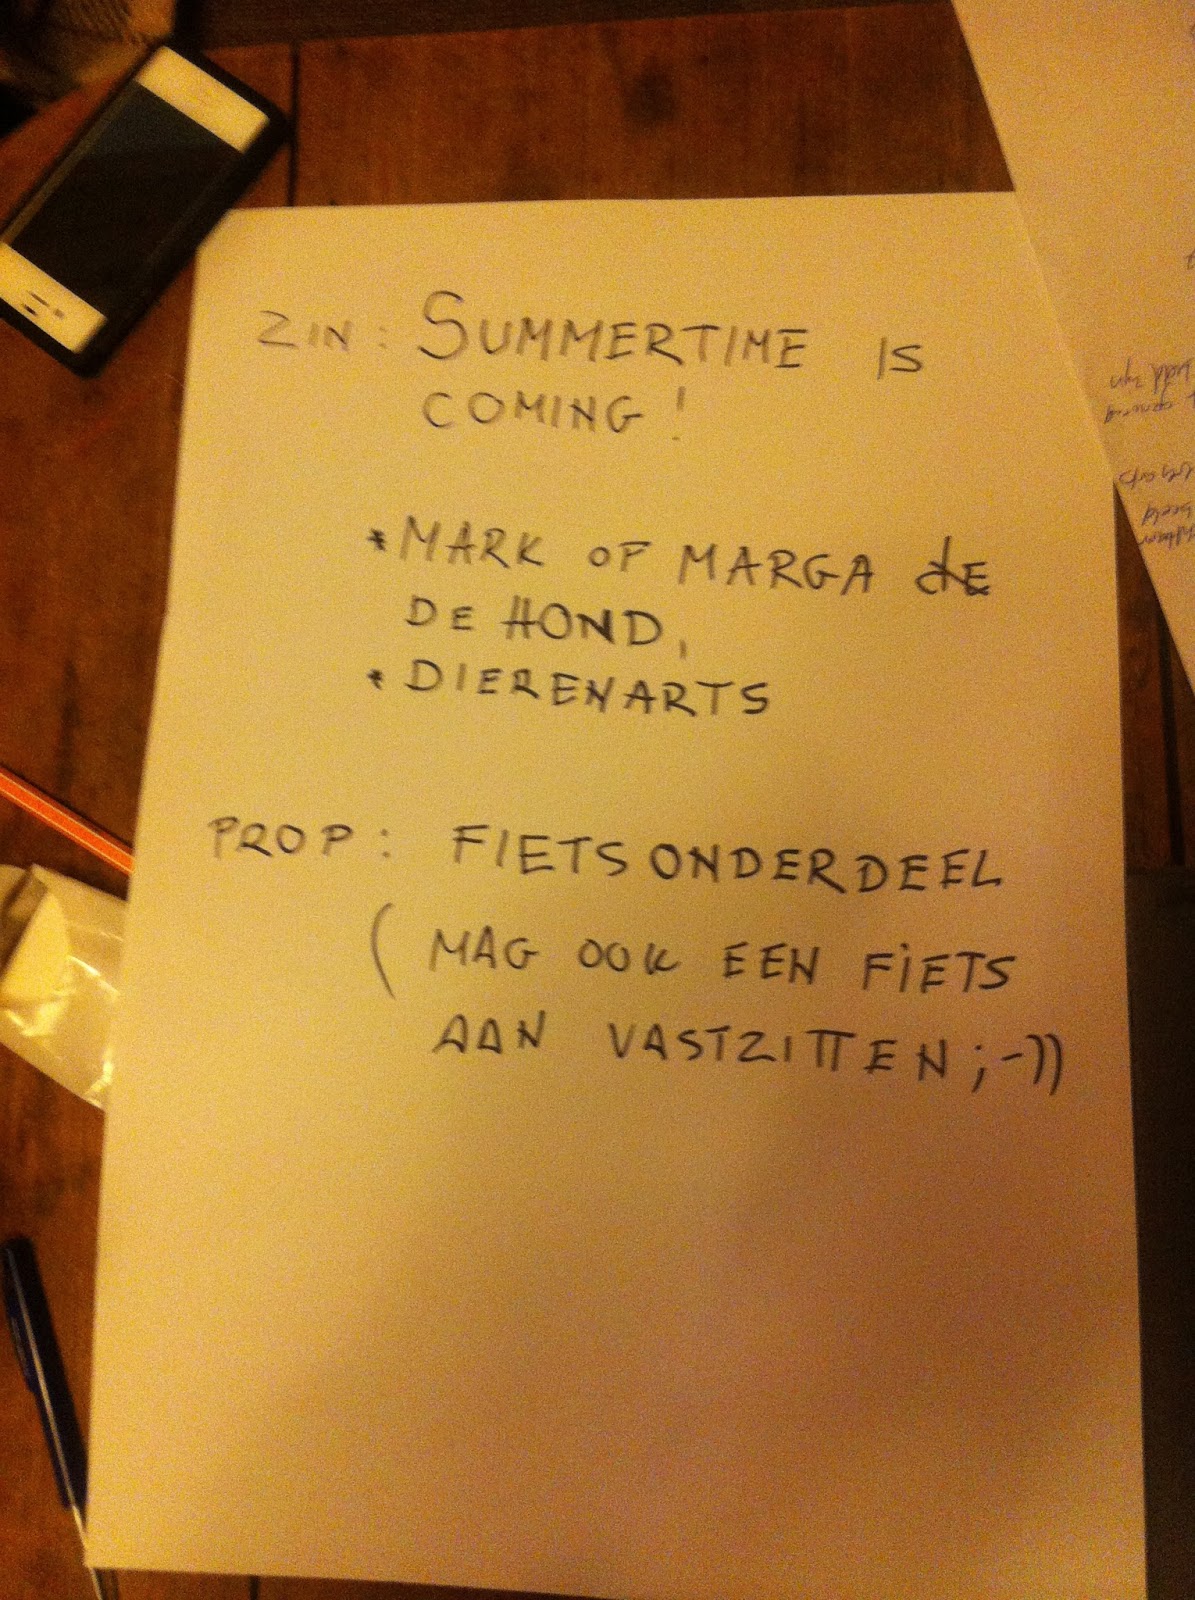 ZIN: SUMMERTIME IS
COMING!
* MARK OF MARGA de
DE HOND,
* DIERENARTS
PROP: FIETSONDERDEEL
(MAG OOK EEN FIETS
AAN VASTZITTEN ;-))